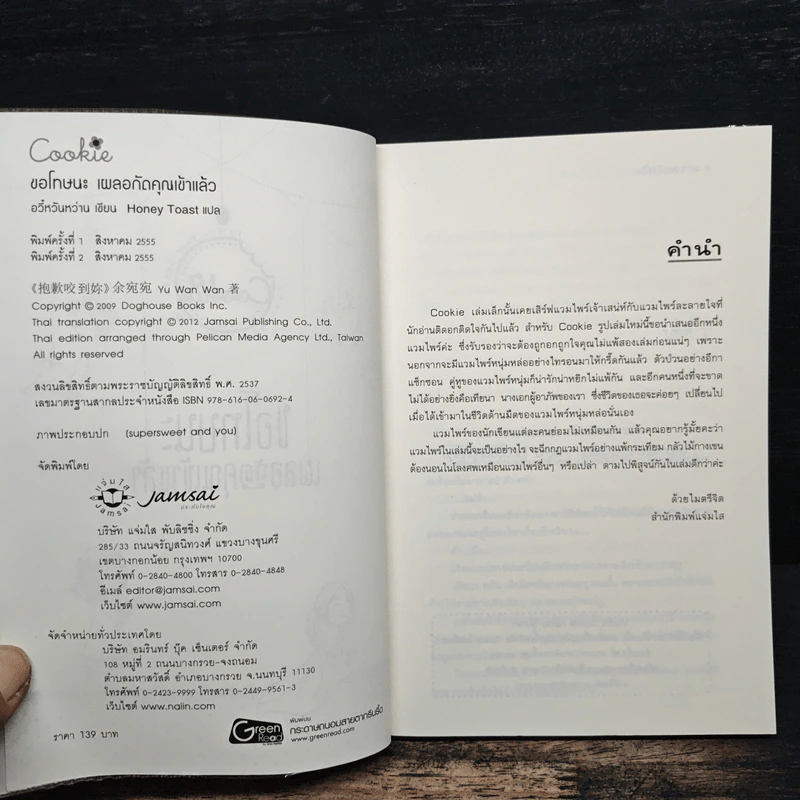 Cookie
ขอโทษนะ เผลอกัดคุณเข้าแล้ว
อวี๋หวันหว่าน เขียน Honey Toast แปล
พิมพ์ครั้งที่ 1 สิงหาคม 2555
พิมพ์ครั้งที่ 2 สิงหาคม 2555
《抱歉咬到妳》余宛宛 Yu Wan Wan 著
Copyright © 2009 Doghouse Books Inc.
Thai translation copyright © 2012 Jamsai Publishing Co., Ltd.
Thai edition arranged through Pelican Media Agency Ltd., Taiwan
All rights reserved
สงวนลิขสิทธิ์ตามพระราชบัญญัติลิขสิทธิ์ พ.ศ. 2537
เลขมาตรฐานสากลประจำหนังสือ ISBN 978-616-06-0692-4
ภาพประกอบปก (supersweet and you)
จัดพิมพ์โดย
แจ่มใส
JAMSAI
Jamsai
บริษัท แจ่มใส พับลิชชิ่ง จำกัด
285/33 ถนนจรัญสนิทวงศ์ แขวงบางขุนศรี
เขตบางกอกน้อย กรุงเทพฯ 10700
โทรศัพท์ 0-2840-4800 โทรสาร 0-2840-4848
อีเมล์ editor@jamsai.com
เว็บไซต์ www.jamsai.com
จัดจำหน่ายทั่วประเทศโดย
บริษัท อมรินทร์ บุ๊ค เซ็นเตอร์ จำกัด
108 หมู่ที่ 2 ถนนบางกรวย-จงถนอม
ตำบลมหาสวัสดิ์ อำเภอบางกรวย จ.นนทบุรี 11130
โทรศัพท์ 0-2423-9999 โทรสาร 0-2449-9561-3
เว็บไซต์ www.naiin.com
ราคา 139 บาท
Green Read
พิมพ์บน
กระดาษถนอมสายตากรีนรี้ด
www.greenread.com
คำนำ
Cookie เล่มเล็กนั้นเคยเสิร์ฟแวมไพร์เจ้าเสน่ห์กับแวมไพร์ละลายใจที่
นักอ่านติดอกติดใจกันไปแล้ว สำหรับ Cookie รูปเล่มใหม่นี้ขอนำเสนออีกหนึ่ง
แวมไพร์ค่ะ ซึ่งรับรองว่าจะต้องถูกอกถูกใจคุณไม่แพ้สองเล่มก่อนแน่ๆ เพราะ
นอกจากจะมีแวมไพร์หนุ่มหล่ออย่างไทรอนมาให้กรี๊ดกันแล้ว ตัวป่วนอย่างอีกา
แซ็กซอน คู่หูของแวมไพร์หนุ่มก็น่ารักน่าหยิกไม่แพ้กัน และอีกคนหนึ่งที่จะขาด
ไม่ได้อย่างยิ่งคือเทียนา นางเอกผู้อาภัพของเรา ซึ่งชีวิตของเธอจะค่อยๆ เปลี่ยนไป
เมื่อได้เข้ามาในชีวิตด้านมืดของแวมไพร์หนุ่มหล่อนั่นเอง
แวมไพร์ของนักเขียนแต่ละคนย่อมไม่เหมือนกัน แล้วคุณอยากรู้มั้ยคะว่า
แวมไพร์ในเล่มนี้จะเป็นอย่างไร จะฉีกกฎแวมไพร์อย่างแพ้กระเทียม กลัวไม้กางเขน
ต้องนอนในโลงศพเหมือนแวมไพร์อื่นๆ หรือเปล่า ตามไปพิสูจน์กันในเล่มดีกว่าค่ะ
ด้วยไมตรีจิต
สำนักพิมพ์แจ่มใส